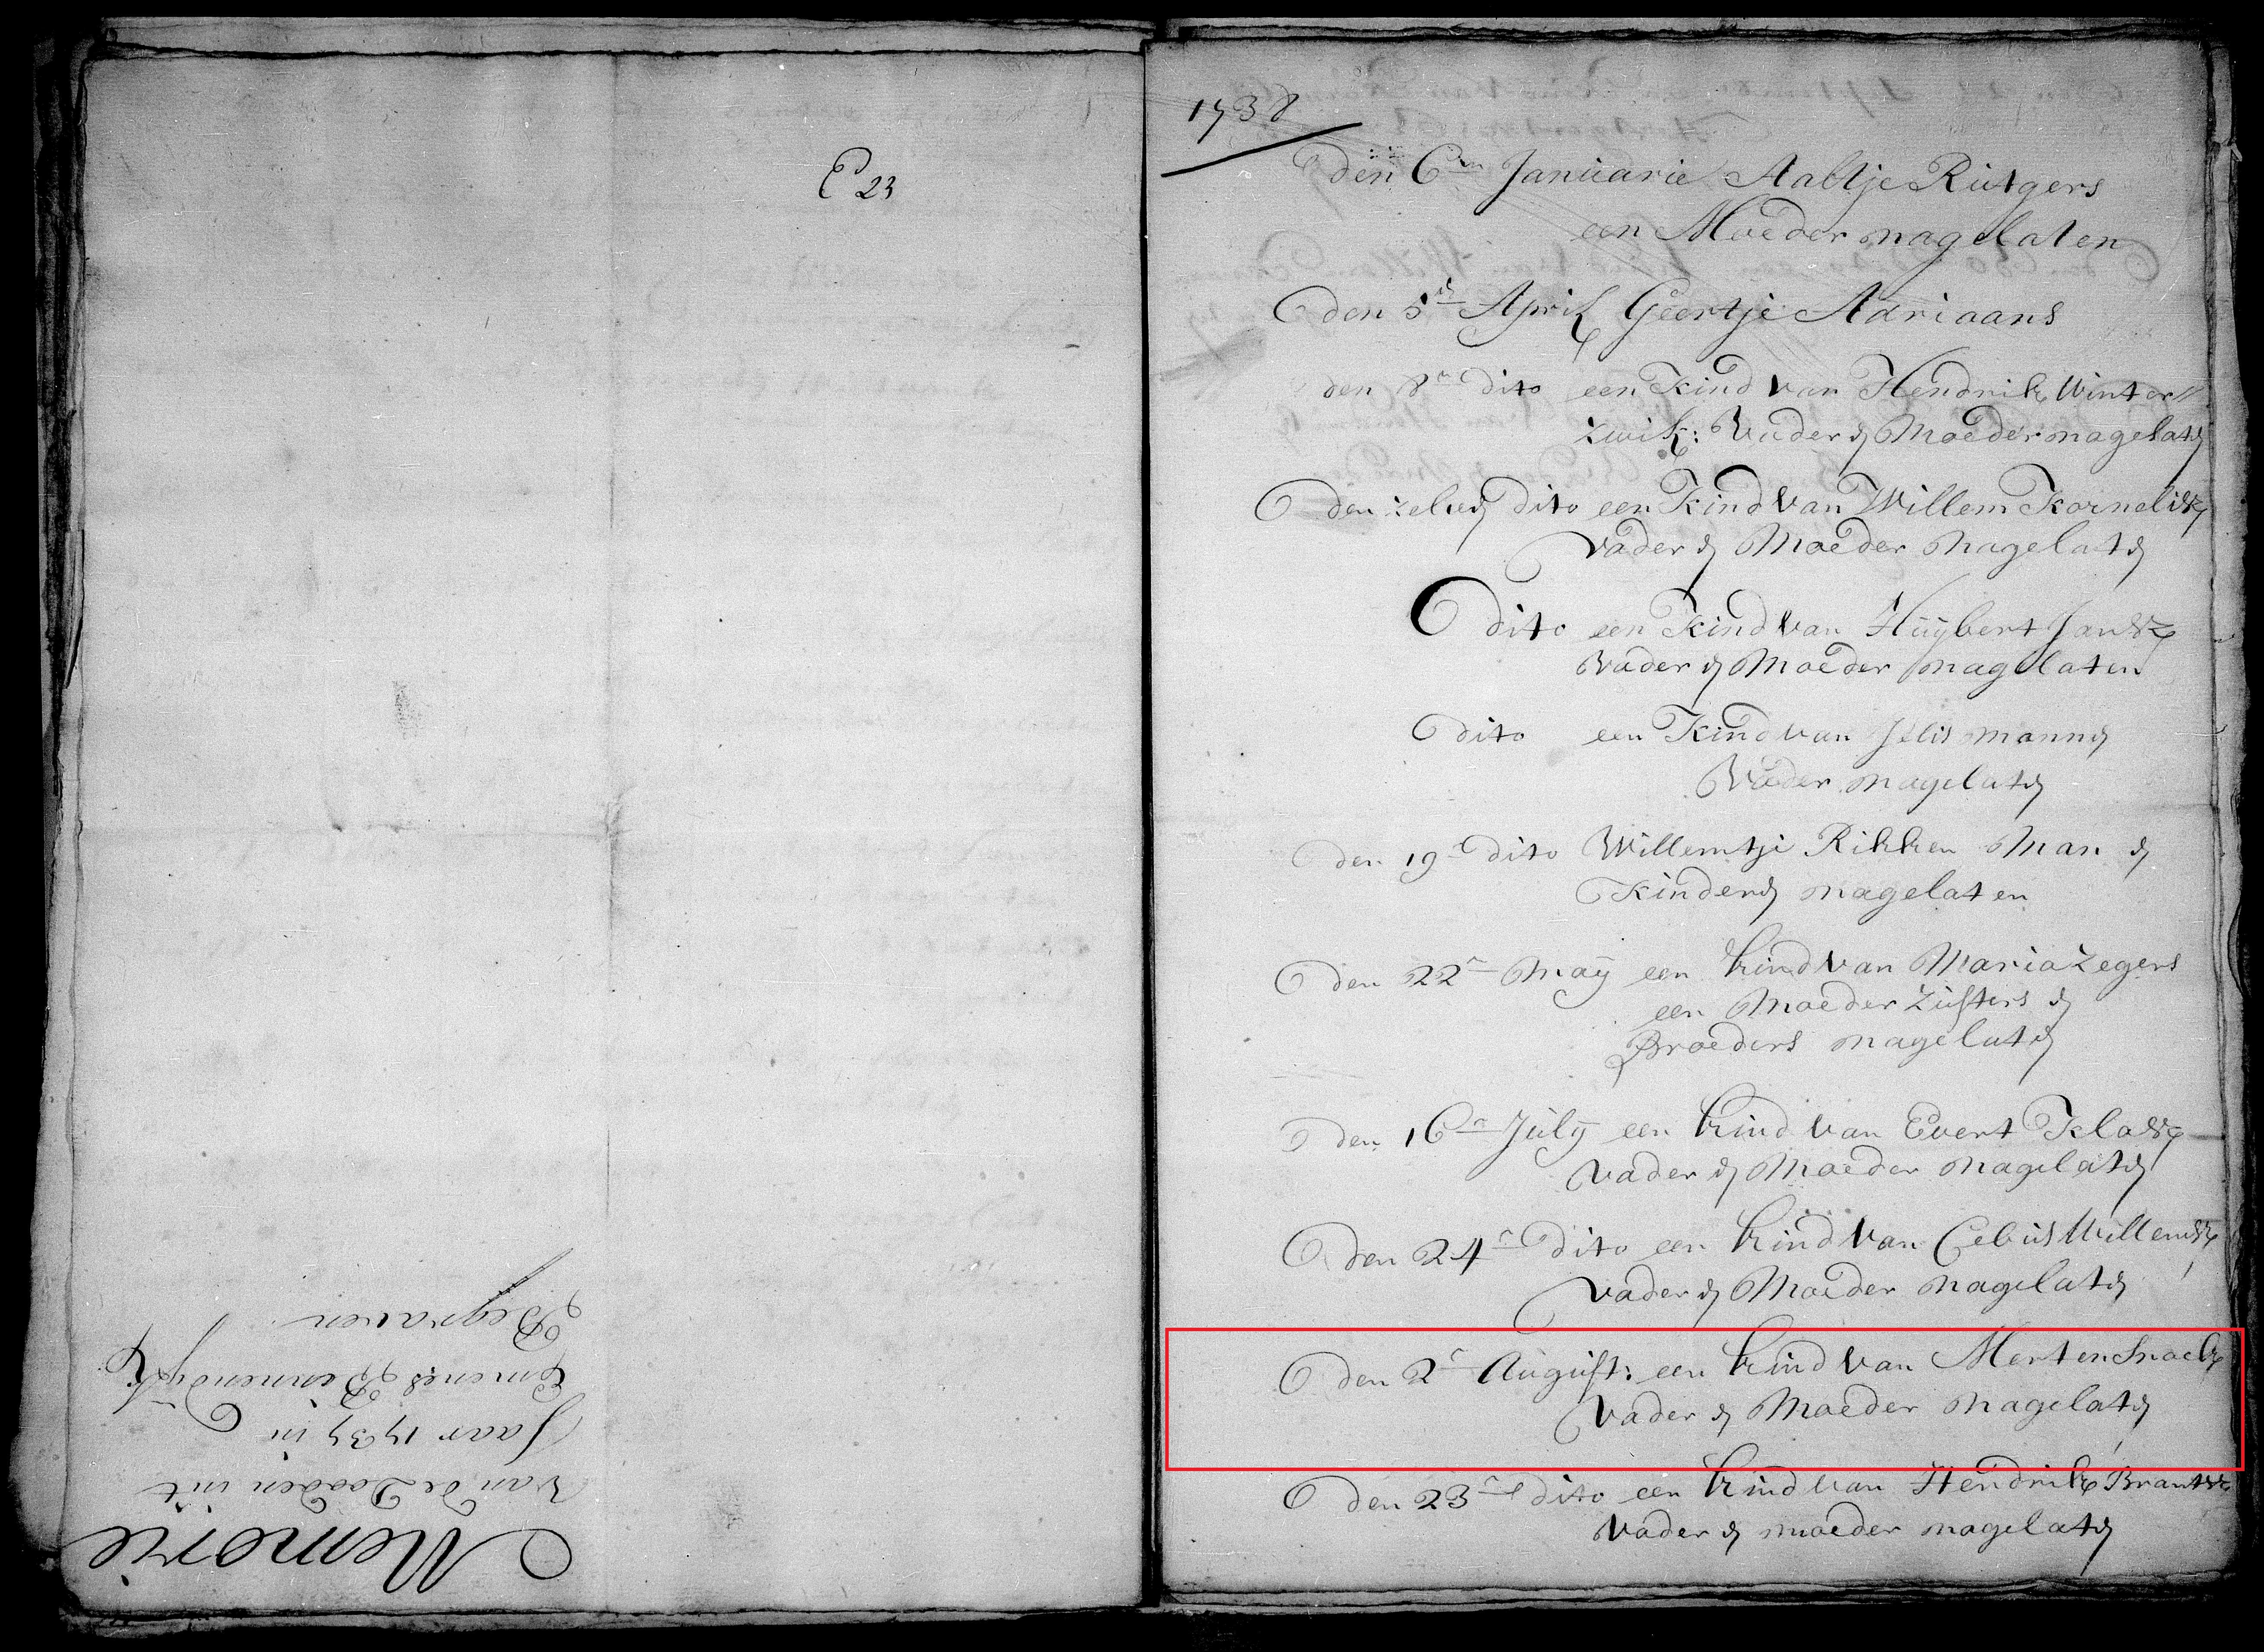 E 23
Memorie
van de Dooden uit
Jaar 1737 in
Emenes Binnendijk
Begraven
1738
den 6en Januarie Aaltje Rutgers
een Moeder nagelaten
den 5n April Geertje Adriaans
den 8n dito een Kind van Hendrik Winter
zwik: Vader en Moeder nagelaten
den zelven dito een Kind van Willem Kornelisz
vader en Moeder Nagelaten
dito een Kind van Huijbert Jansz
vader en Moeder nagelaten
dito een Kind van Jelis mannen
Vader nagelaten
Den 19n dito Willemtje Rikken Man en
Kinderen nagelaten
den 22n Maij een kind van Maria Zegers
een Moeder Zusters en
Broeders nagelaten
den 16n July een kind van Evert Klasz
vader en Moeder nagelaten
den 24n dito een kind van Cebus Willemsz
vader en Moeder nagelaten
den 2n August: een kind van Merten Snoek
vader en Moeder nagelaten
den 23n dito een kind van Hendrik Brantsz
vader en moeder nagelaten